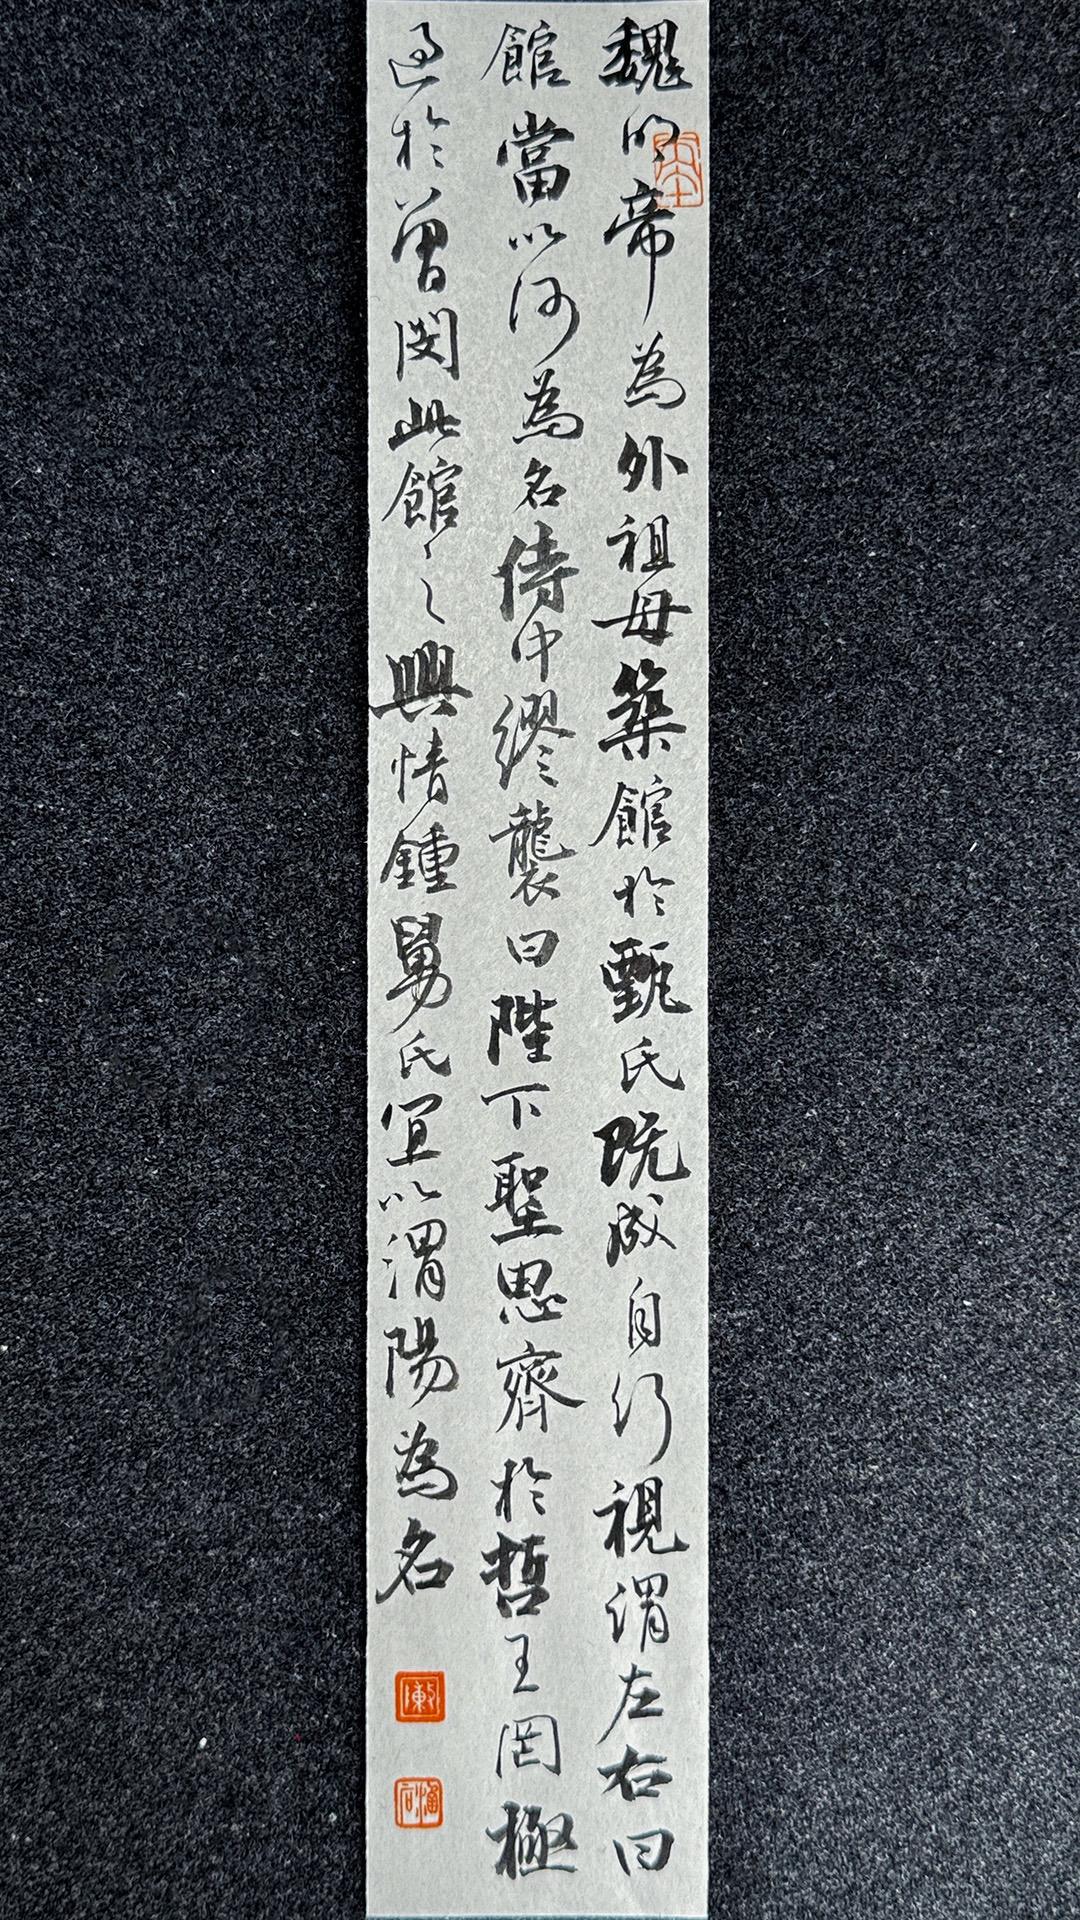 魏明帝為外祖母築館於甄氏既成自行視謂左右曰
館當以何為名侍中繆襲曰陛下聖思齊於哲王罔極
過於曾閔此館之興情鍾舅氏宜以渭陽為名